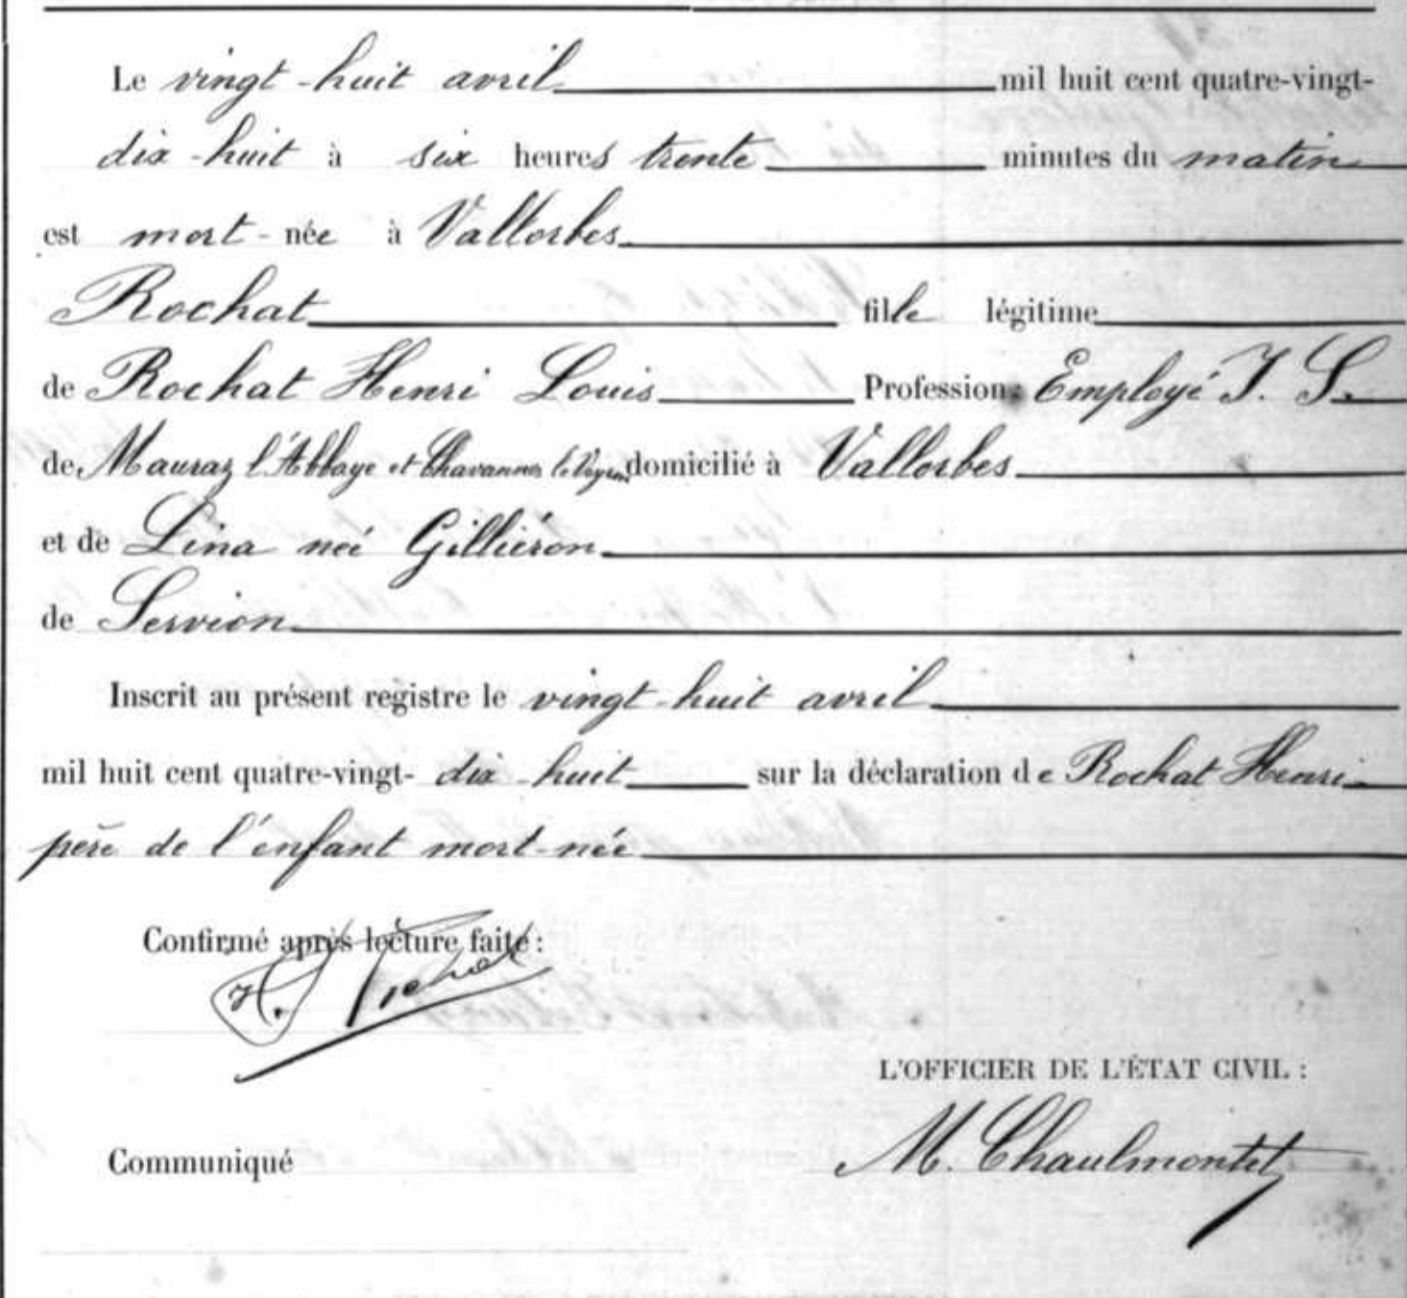 Le vingt-huit avril mil huit cent quatre-vingt-
dix-huit à six heures trente minutes du matin
est mort-née à Vallorbes
Rochat fille légitime
de Rochat Henri Louis Profession: Employé J. S.
de Mauraz l'Abbaye et Chavannes le Veyron domicilié à Vallorbes
et de Lina née Gilliéron
de Servion
Inscrit au présent registre le vingt-huit avril
mil huit cent quatre-vingt- dix-huit sur la déclaration de Rochat Henri
père de l'enfant mort-née
Confirmé après lecture faite:
H. Rochat
L'OFFICIER DE L'ÉTAT CIVIL :
Communiqué M. Chaulmontet